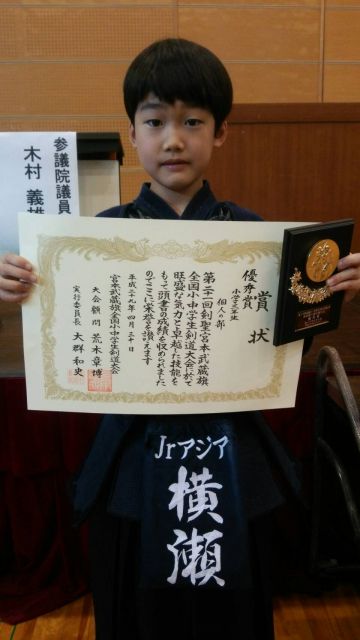 参議院議員
木村 義雄
賞状
優秀賞
小学二年生
個人の部
第二十一回剣聖宮本武蔵旗
全国小中学生剣道大会に於て
旺盛な気力と卓越した技能を
もって頭書の成績を収められました
のでここに栄誉を讃えます
平成二十九年四月三十日
宮本武蔵旗全国小中学生剣道大会
大会顧問 荒木章博
実行委員長 大群和史
Jrアジア
横瀬